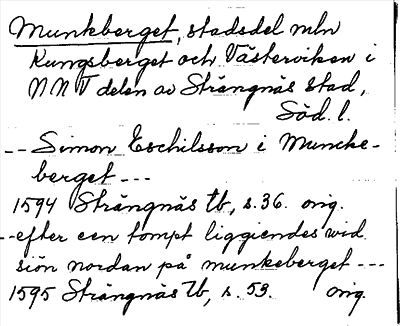 Munkberget, stadsdel mln
Kungsberget och Västerviken i
NNV delen av Strängnäs stad,
Söd. l.
-- Simon Eschilsson i Muncke-
berget ---
1594 Strängnäs tb, s. 36. orig.
-- efter een tompt liggiendes wid
siön nordan på munkeberget ---
1595 Strängnäs tb, s. 53. orig.